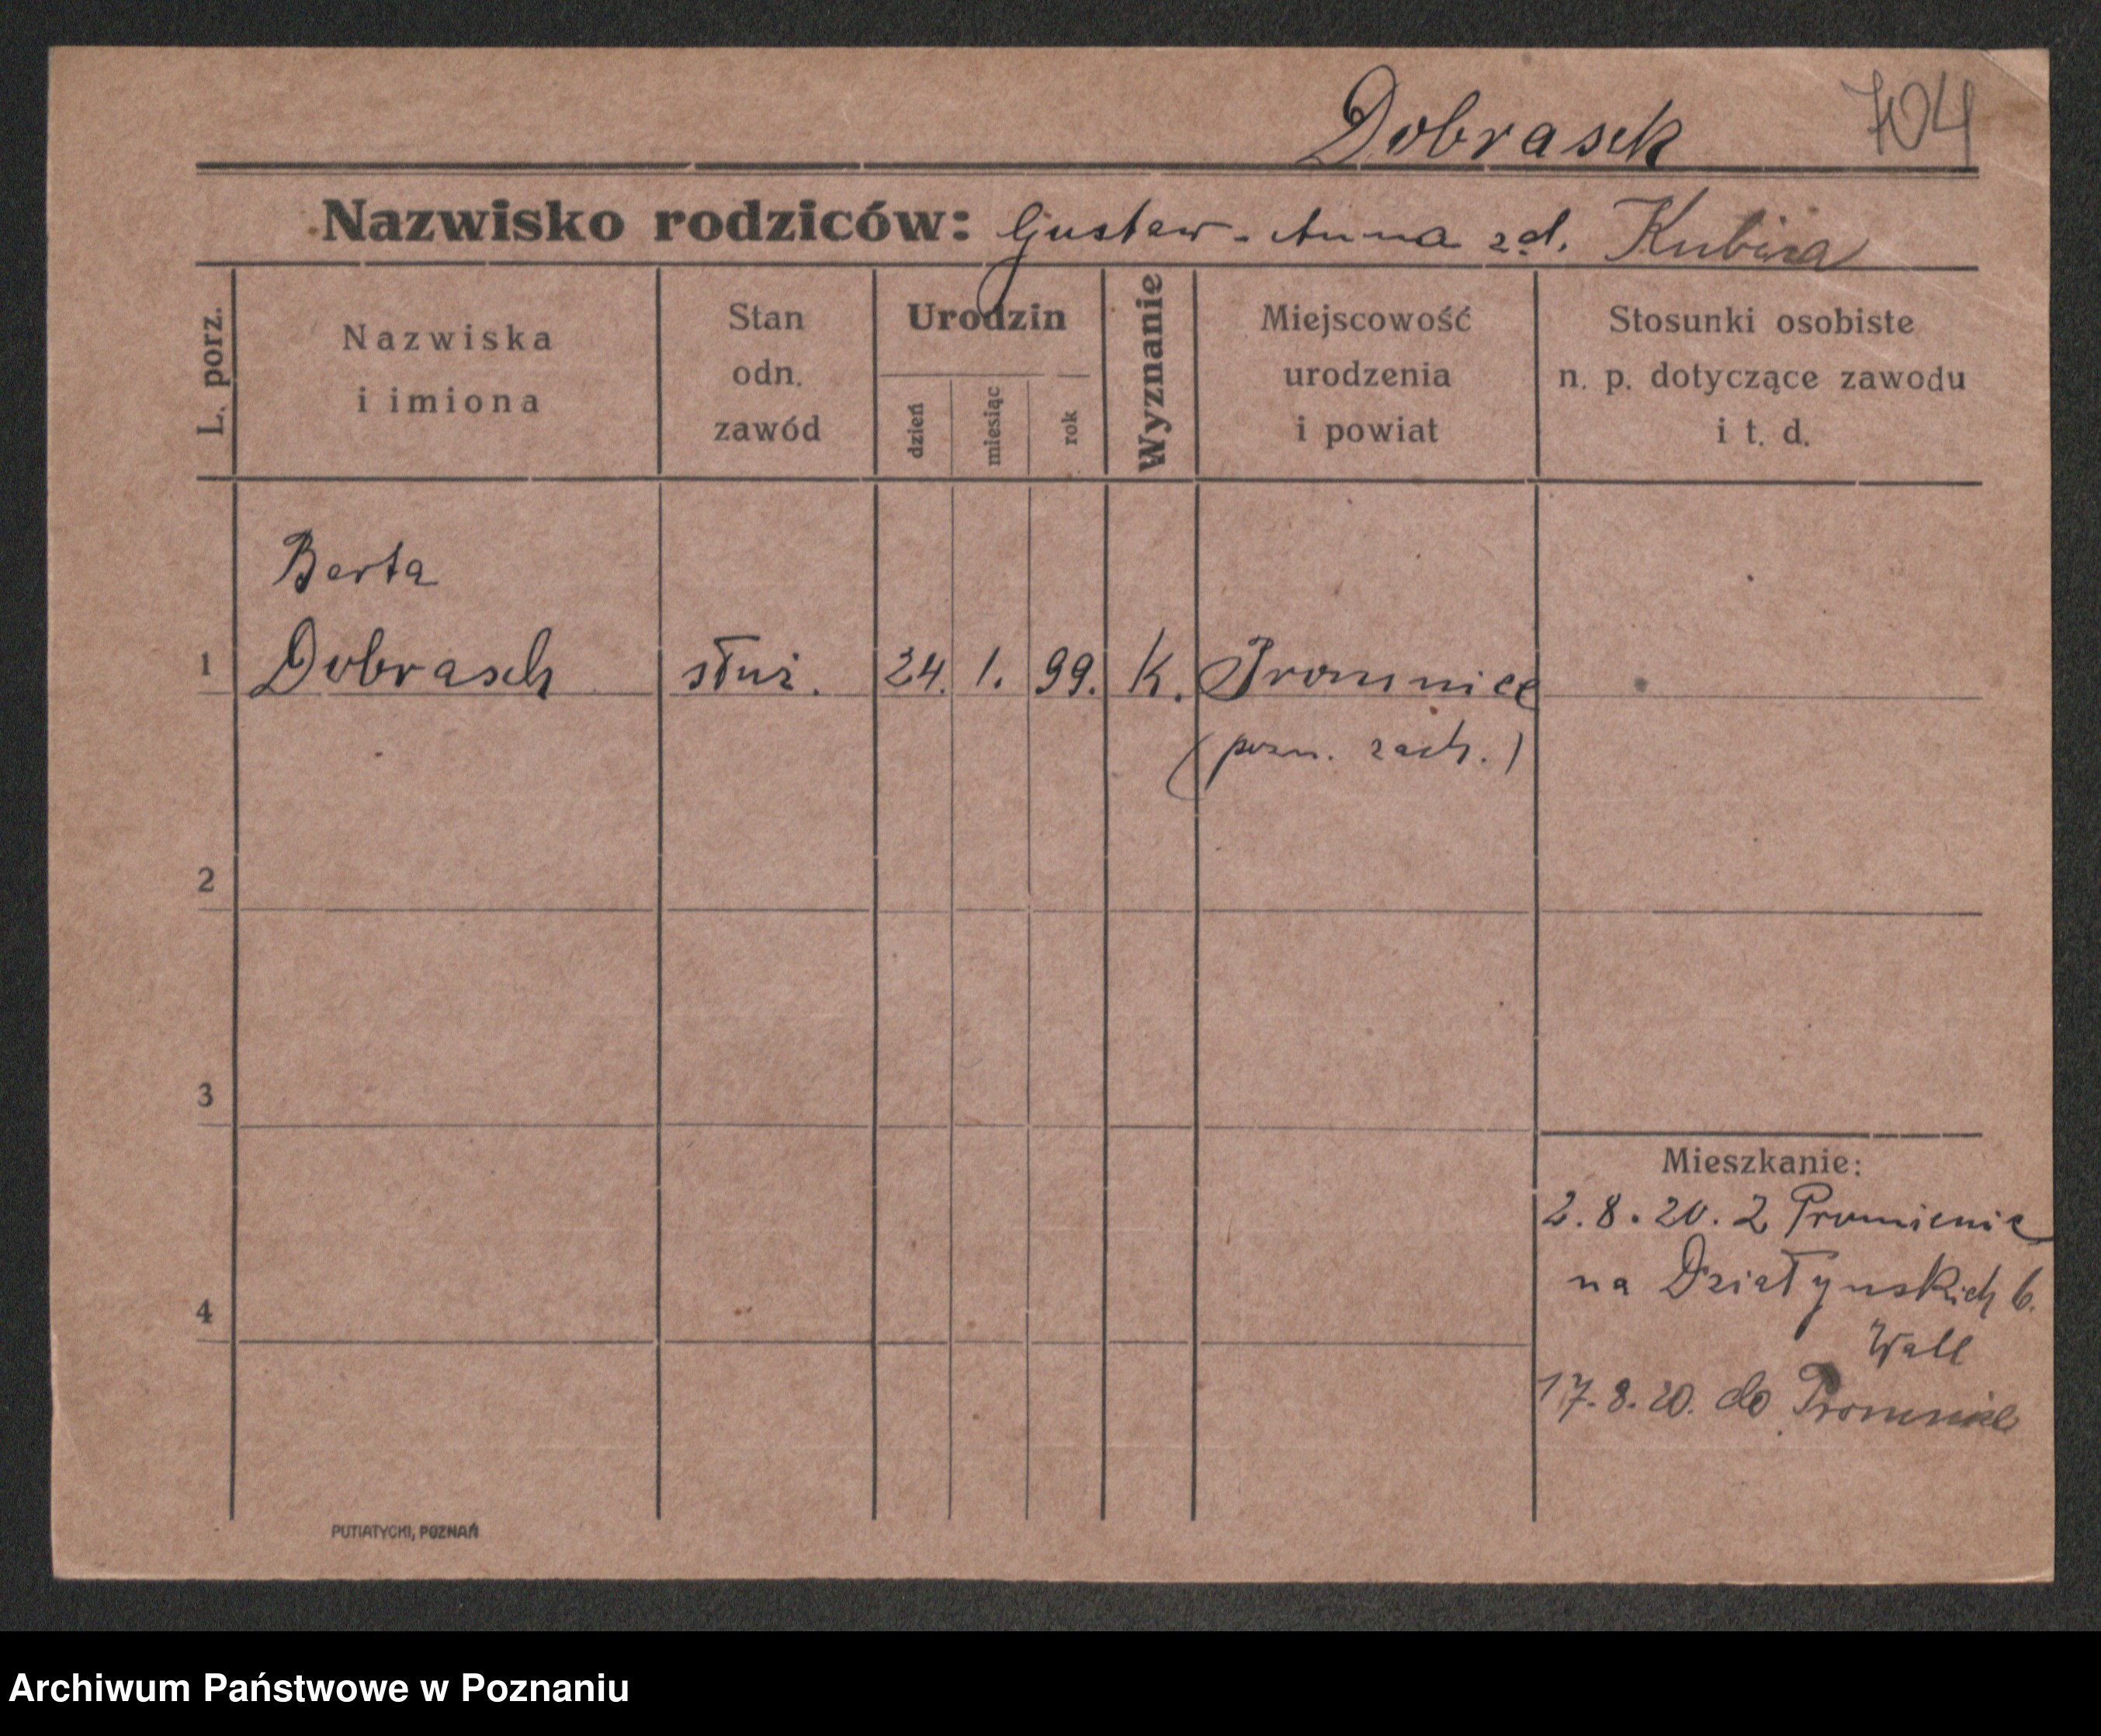 Dobrasch 704
Nazwisko rodziców: Gustaw - Anna zd. Kubiza
L. porz.
Nazwiska
i imiona
Stan
odn.
zawód
Urodzin
dzień
miesiąc
rok
Wyznanie
Miejscowość
urodzenia
i powiat
Stosunki osobiste
n. p. dotyczące zawodu
i t. d.
Berta
1 Dobrasch służ. 24. 1. 99. K. Promnice
(pozn. zach.)
2
3
4
Mieszkanie:
2.8.20. z Promienic
na Działynskich 6.
Wall
17.8.20. do Promnice
PUTIATYCKI, POZNAŃ
Archiwum Państwowe w Poznaniu